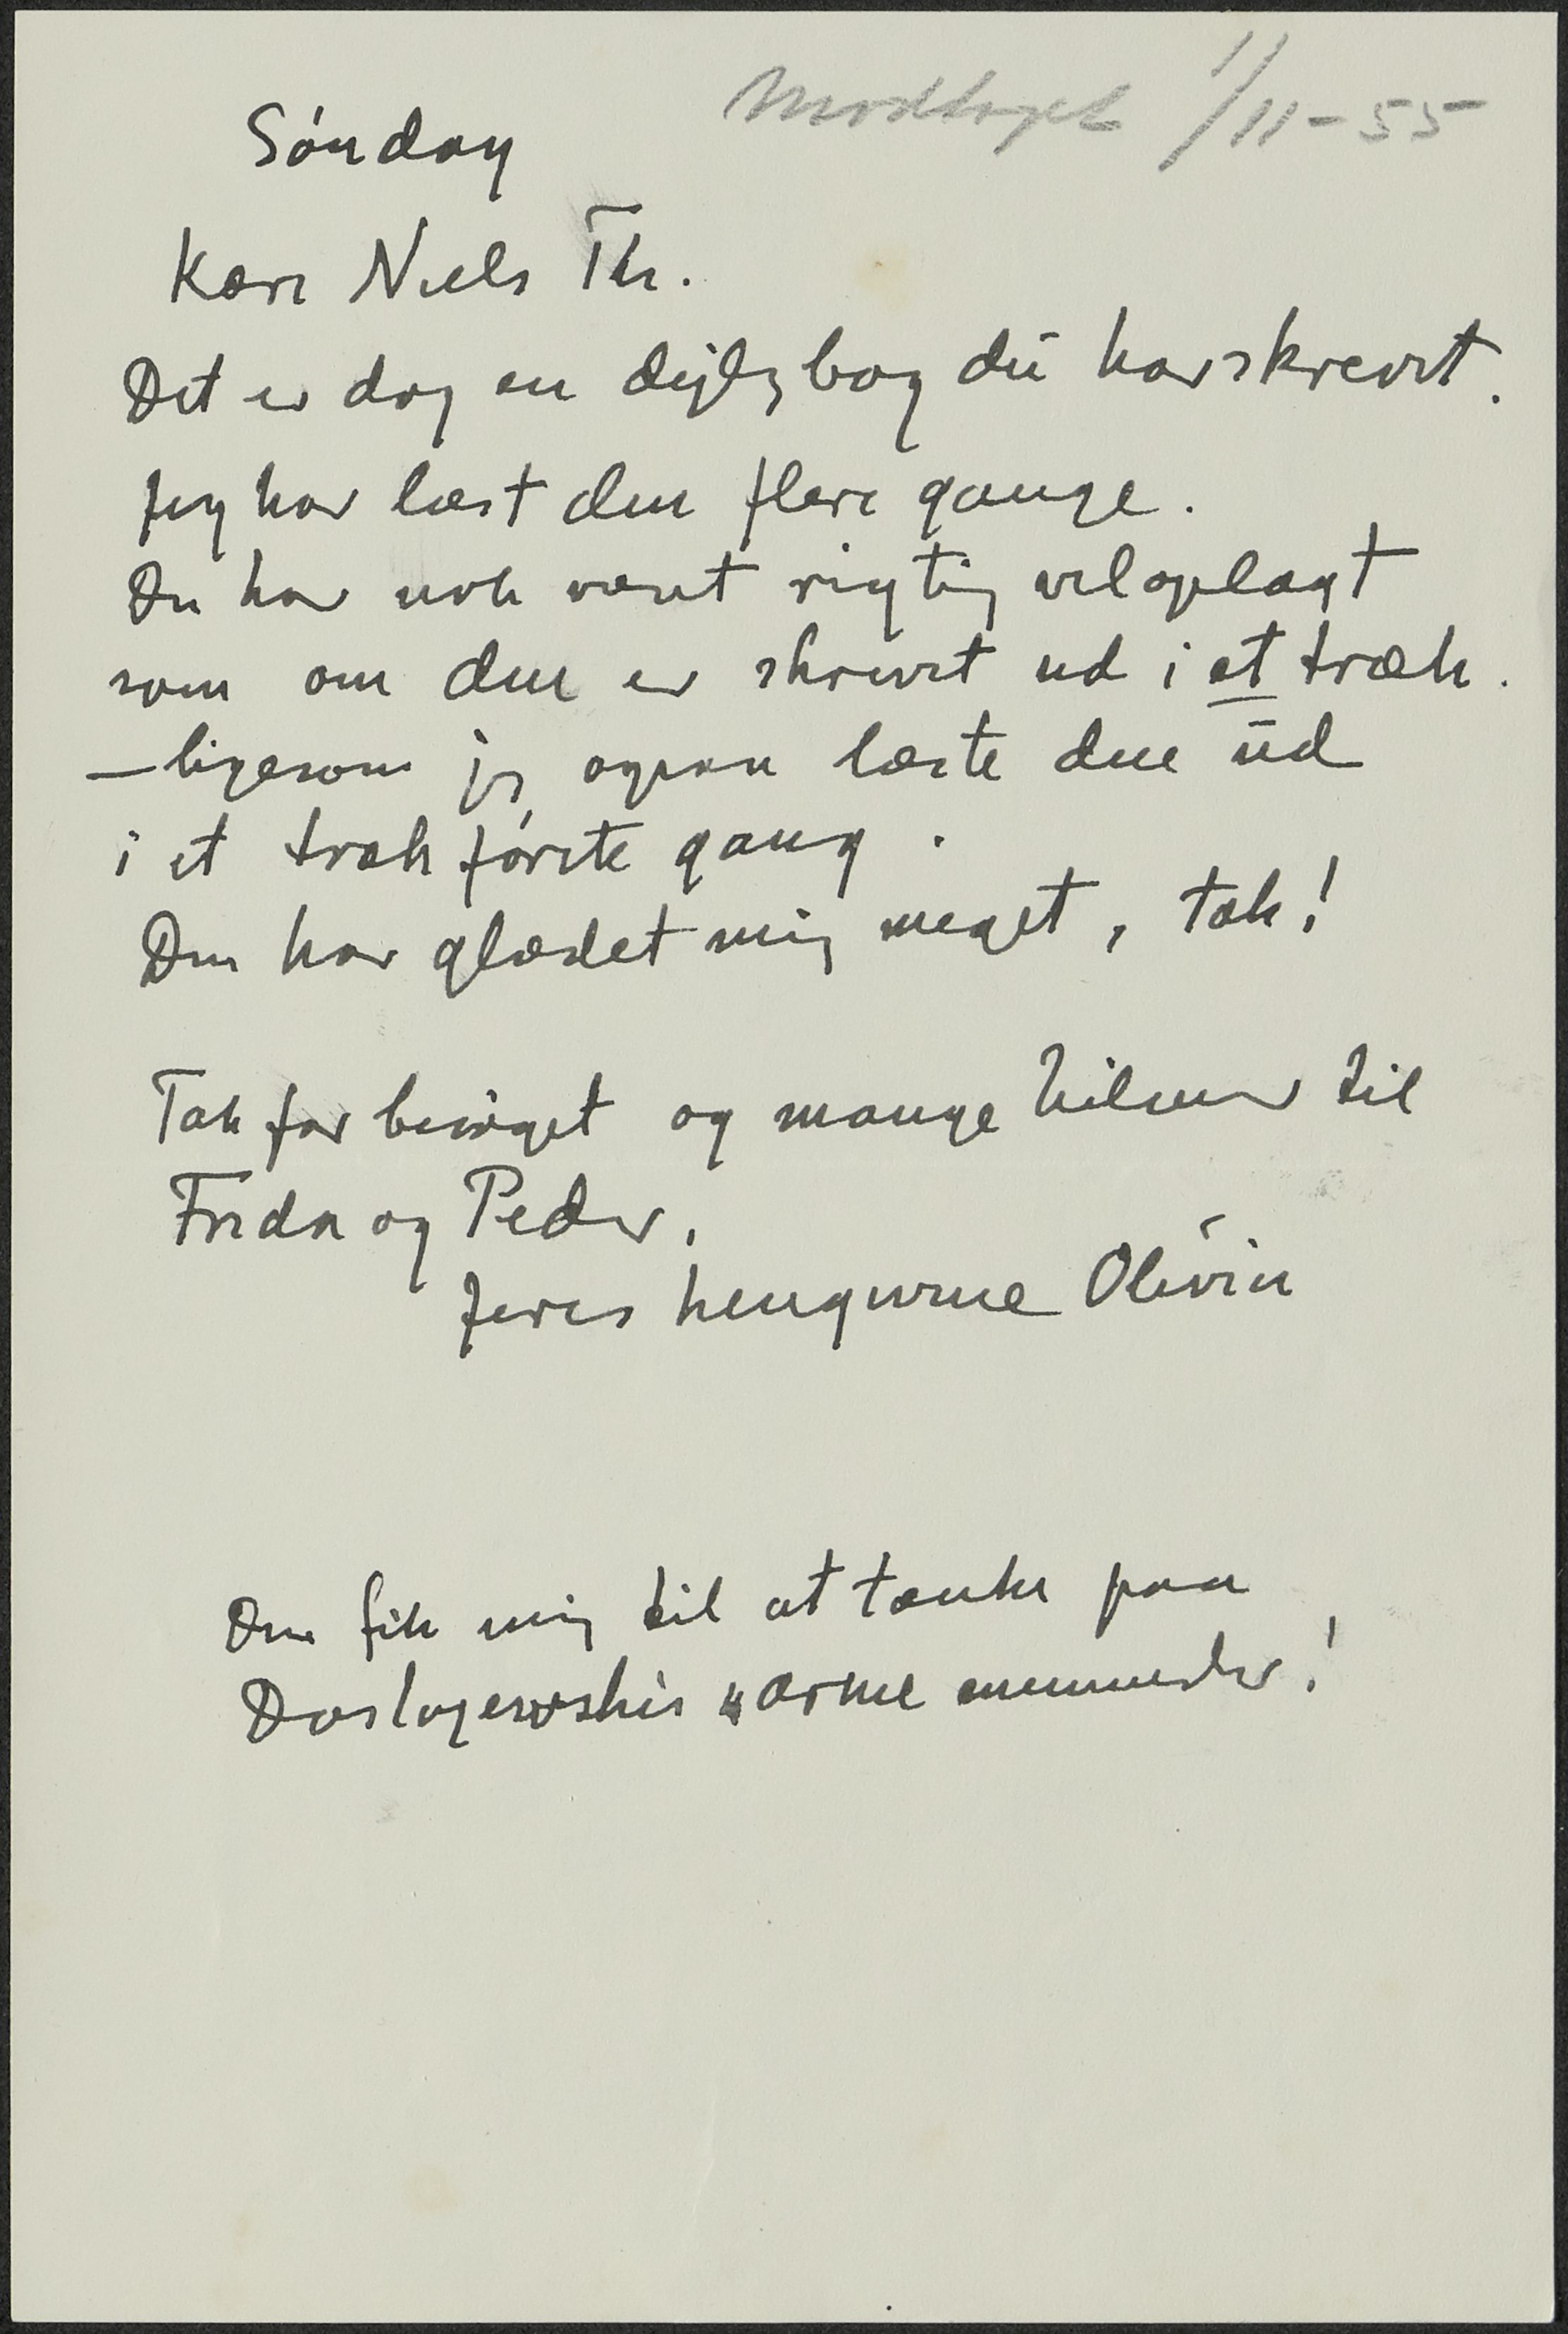 Modtaget 1/11-55
Sónday
Kære Niels Th.
Det er dog en dejlig bog du har skrevet.
Jeg har læst den flere gange.
Du har nok været rigtig veloplagt
som om den er skrevet ud i et træk.
– ligesom jeg ogsaa læste den ud
i et træk fórste gang.
Den har glædet mig meget, tak!
Tak for besóget og mange hilsener til
Frida og Peder.
Jeres hengivne Olivia
Den fik mig til at tænke paa
Dostojevskis „arme mennesker!